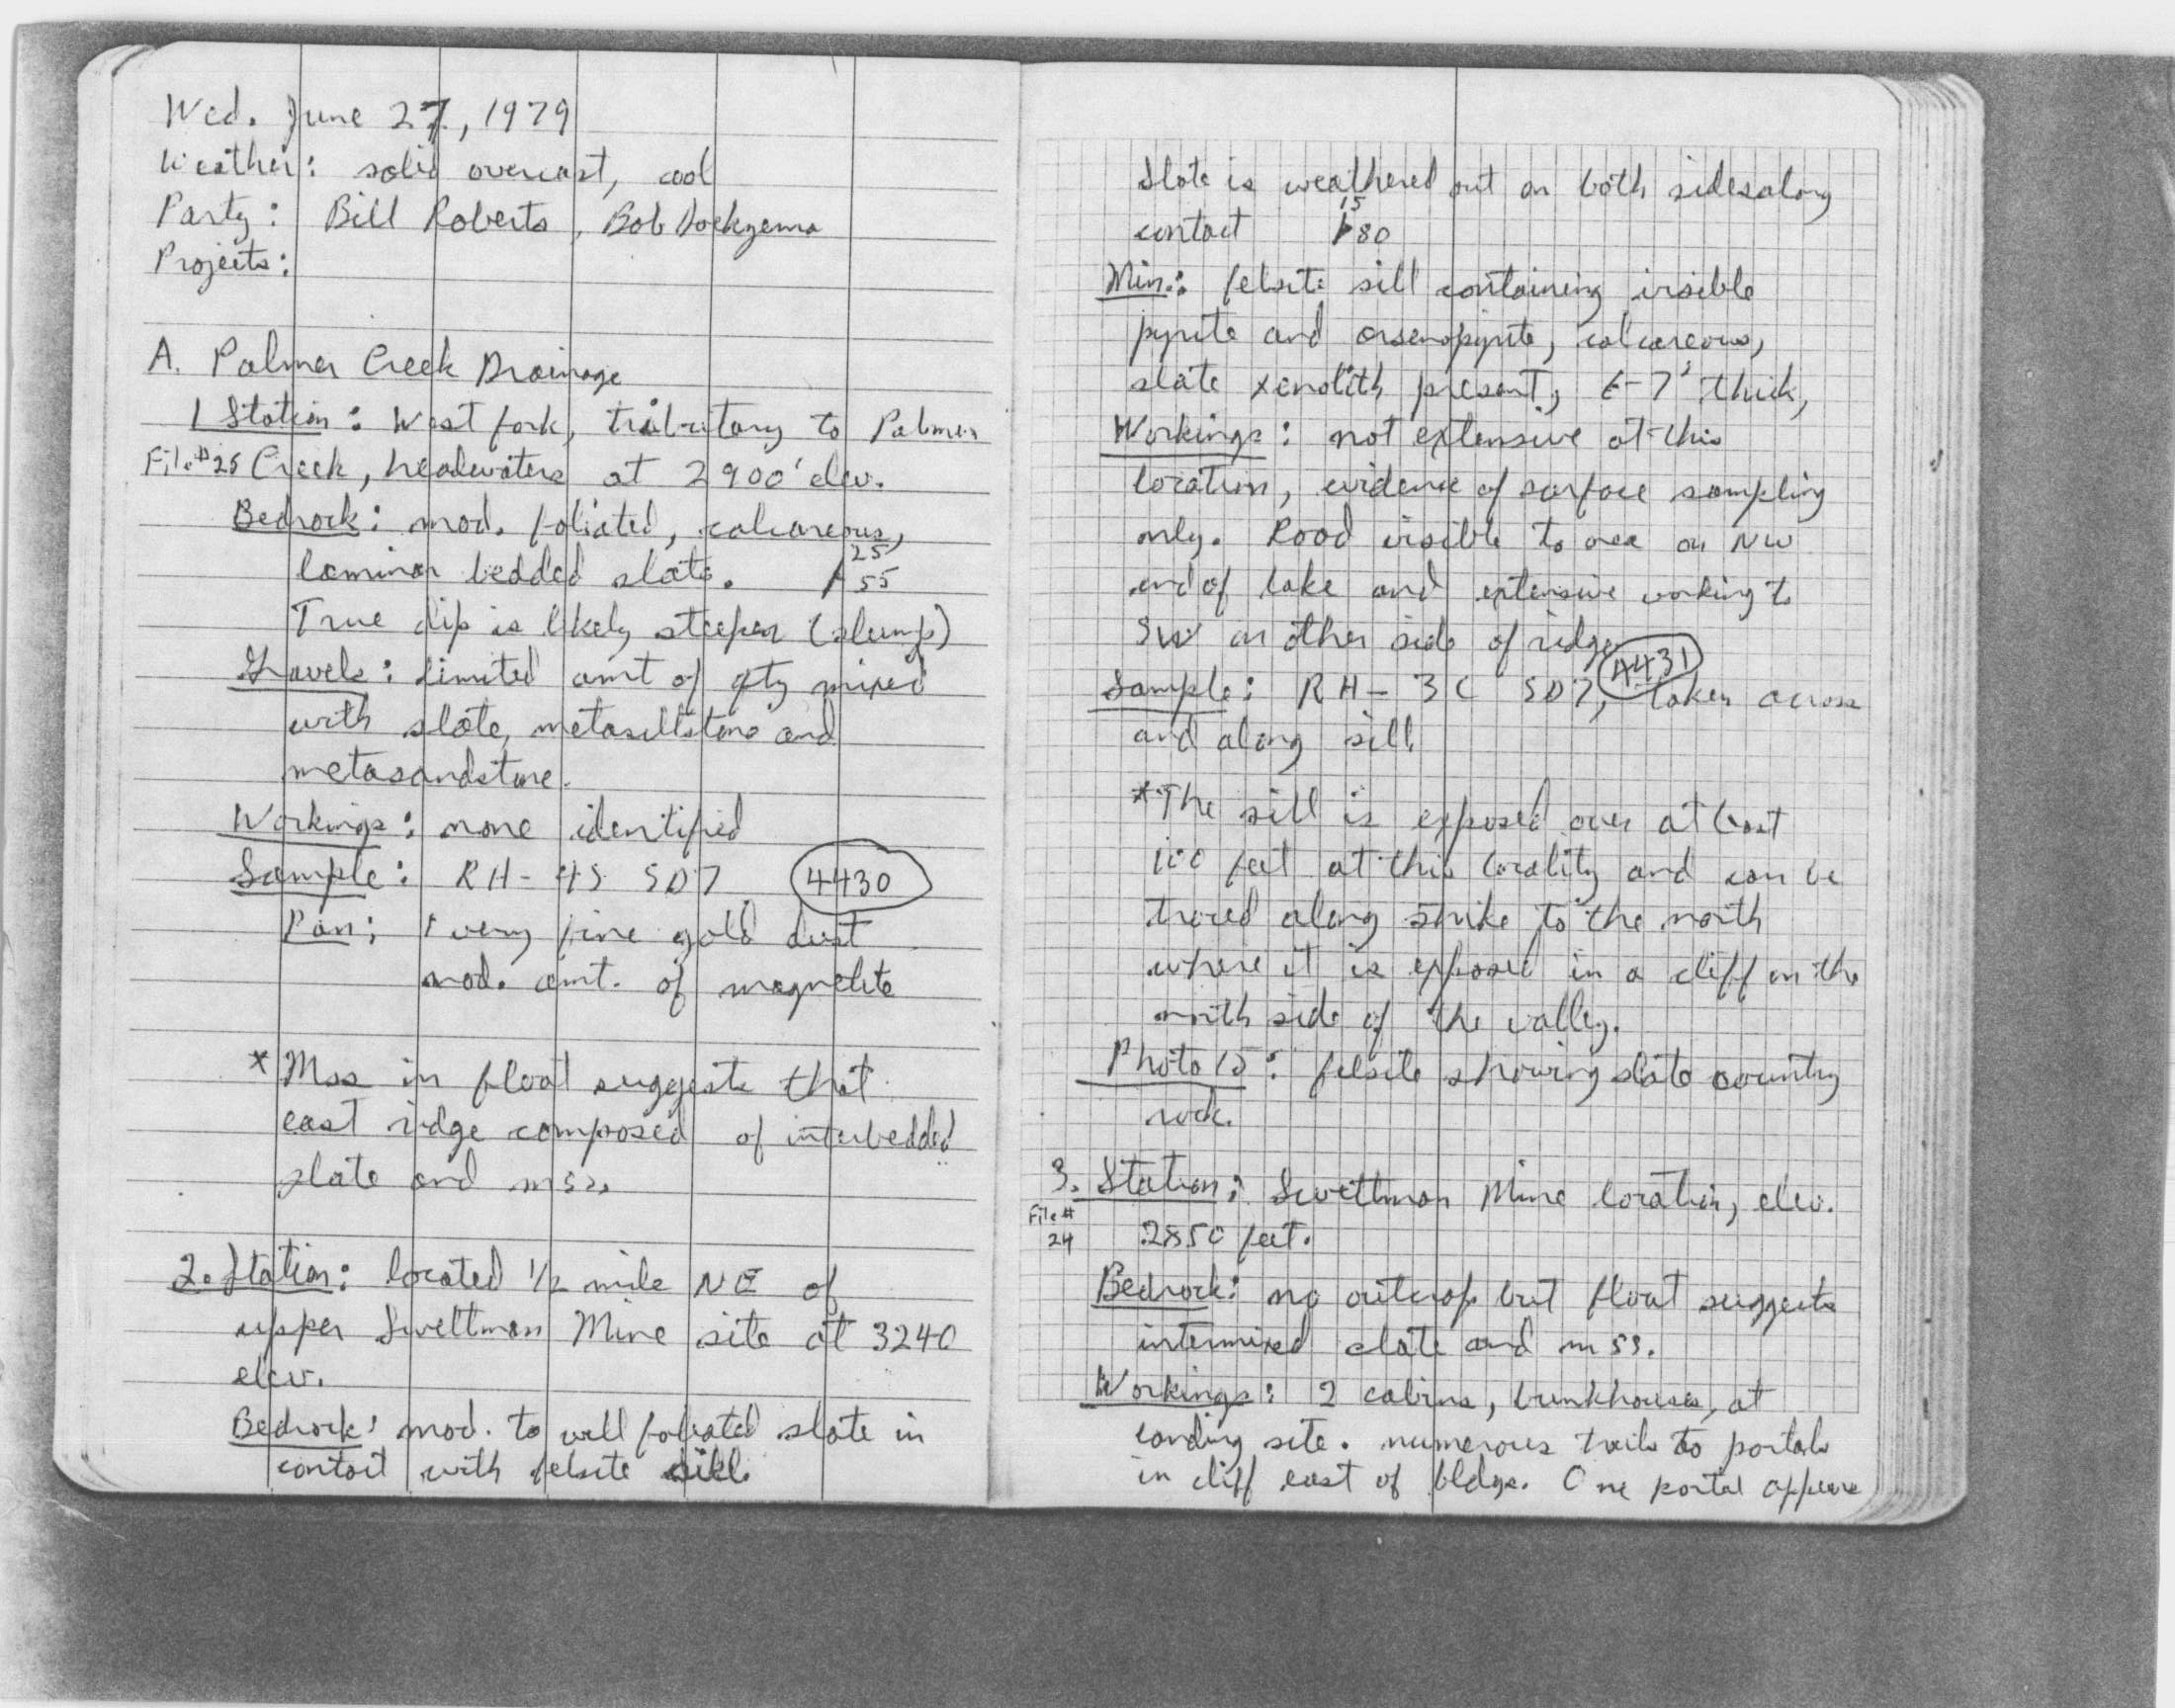 Wed. June 27, 1979
Weather: solid overcast, cool
Party: Bill Roberts, Bob
Projects:
A. Palmer Creek Drainage
1 Station: West fork, tributary to Palmer
File #25 Creek, headwaters at 2900' elev.
Bedrock: mod. foliated, calcareous,
laminar bedded slate. 25 55
True dip is likely steeper (slump)
Gravels: limited amt of qtz mixed
with slate, metasiltstone and
metasandstone.
Workings: none identified
Sample: RH-4S SD7 4430
Pan: 1 very fine gold dust
mod. amt. of magnetite
* Mss in float suggests that
east ridge composed of interbedded
slate and mss.
2. Station: located 1/2 mile NE of
upper Swettman Mine site at 3240
elev.
Bedrock: mod. to well foliated slate in
contact with felsite sill.
Slate is weathered out on both sides along
contact 15 80
Min.: felsite sill containing visible
pyrite and arsenopyrite, calcareous,
slate xenolith present, 6-7' thick,
Workings: not extensive at this
location, evidence of surface sampling
only. Road visible to area on NW
end of lake and extensive working to
SW on other side of ridge
Sample: RH-3C SD7, 4431 taken across
and along sill.
*The sill is exposed over at least
100 feet at this locality and can be
traced along strike to the north
where it is exposed in a cliff on the
north side of the valley.
Photo 15: felsite showing slate country
rock.
3. Station: Swettman Mine location, elev.
File # 24 2850 feet.
Bedrock: no outcrop but float suggests
intermixed slate and mss.
Workings: 2 cabins, bunkhouses, at
landing site. numerous trails to portals
in cliff east of bldgs. One portal appears